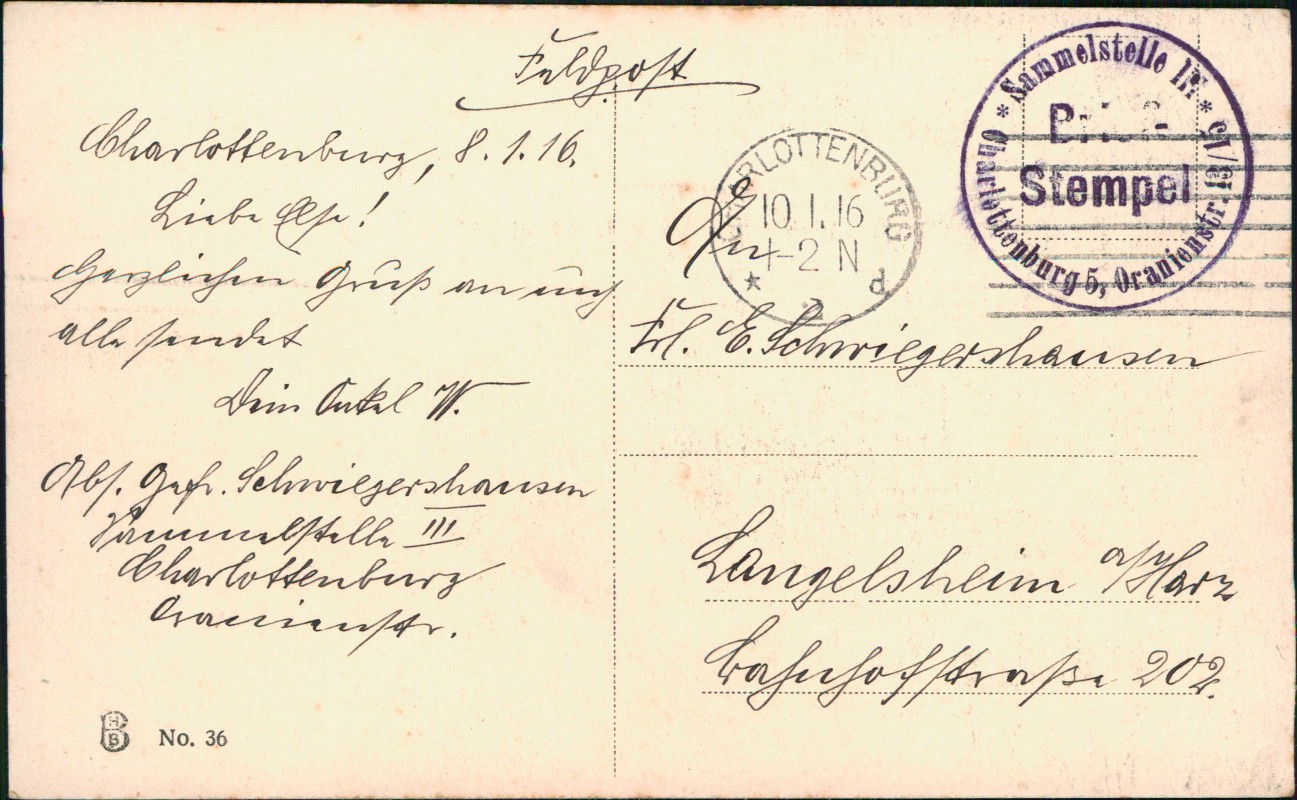 Feldpost
Charlottenburg, 8.1.16.
Liebe Else!
Herzlichen Gruß an euch
alle sendet
Dein Onkel W.
Abs. Gefr. Schwiegershausen
Sammelstelle III
Charlottenburg
Oranienstr.
HB No. 36
CHARLOTTENBURG
10.1.16
1-2 N
* 2 d
* Sammelstelle III *
Charlottenburg 5, Oranienstr.
Brief-
Stempel
An
Frl. E. Schwiegershausen
Langelsheim a/Harz
Bahnhofstraße 202.